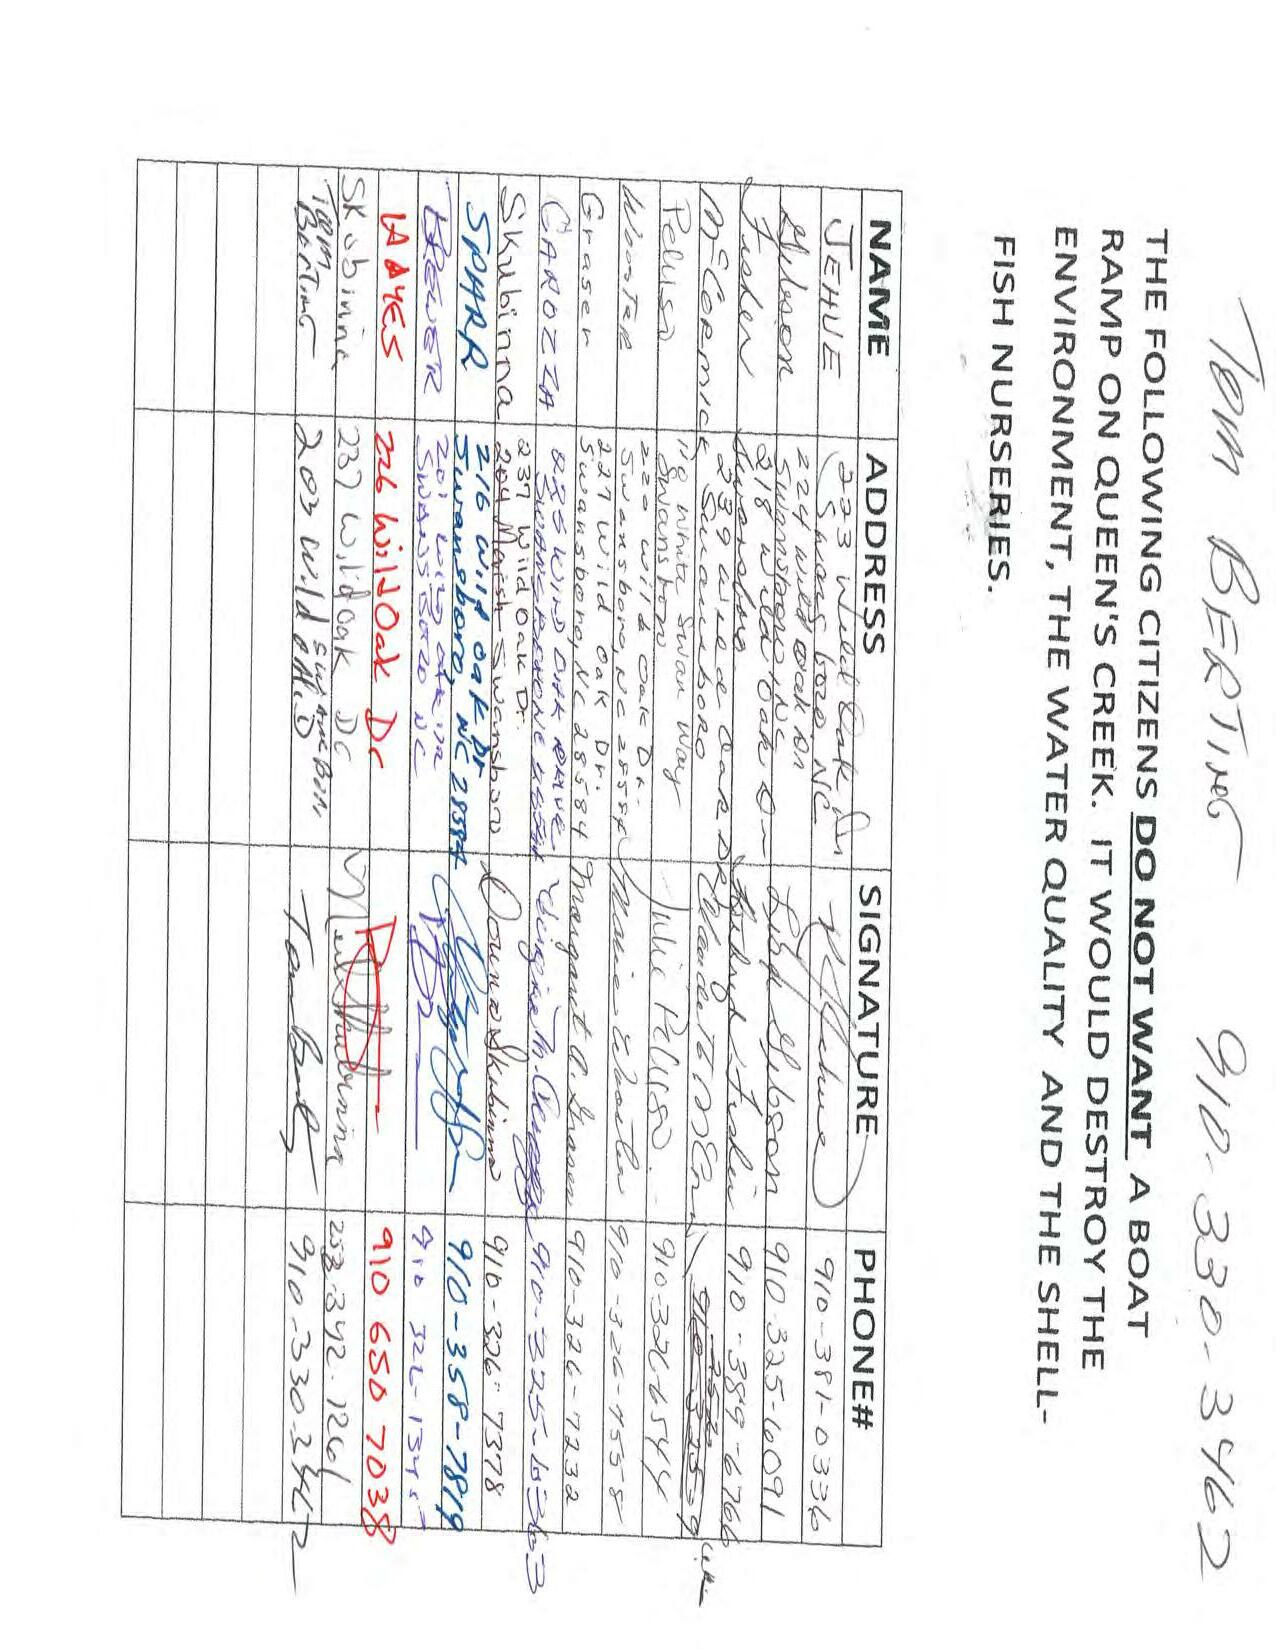 Tom BERTING 910-330-3462
THE FOLLOWING CITIZENS DO NOT WANT A BOAT
RAMP ON QUEEN'S CREEK. IT WOULD DESTROY THE
ENVIRONMENT, THE WATER QUALITY AND THE SHELL-
FISH NURSERIES.
NAME ADDRESS SIGNATURE PHONE#
JEHUE 223 Wild Oak Dr 910-381-0336
Swansboro NC
Gibson 224 Wild Oak Dr Gibson 910-325-6091
Swansboro NC
Fisher 218 Wild Oak Dr Fisher 910-389-6766
Swansboro
McCormick 239 Wild Oak Dr
Swansboro
Pelusa 118 White Swan Way Julie Pelusa 910 326 6544
Swansboro
Wooster 220 Wild Oak Dr. Marie Wooster 910-326-4558
Swansboro, NC 28584
Graser 227 Wild Oak Dr. Margaret A. Graser 910-326-7232
Swansboro, NC 28584
CAROZZA 225 WILD OAK DRIVE Virginia M. 910-325-6363
Skubinna 237 Wild Oak Dr. Donna Skubinna 910-326-7378
204 Marsh Swansboro
SPARR 216 Wild Oak Dr 910-358-7819
Swansboro, NC 28584
BREWER 201 WILD OAK DR
SWANSBORO NC
226 Wild Oak Dr 910 650 7038
Skobinna 237 Wild Oak Dr
Tom BERTING 203 Wild Oak D Tom 910-330-3462